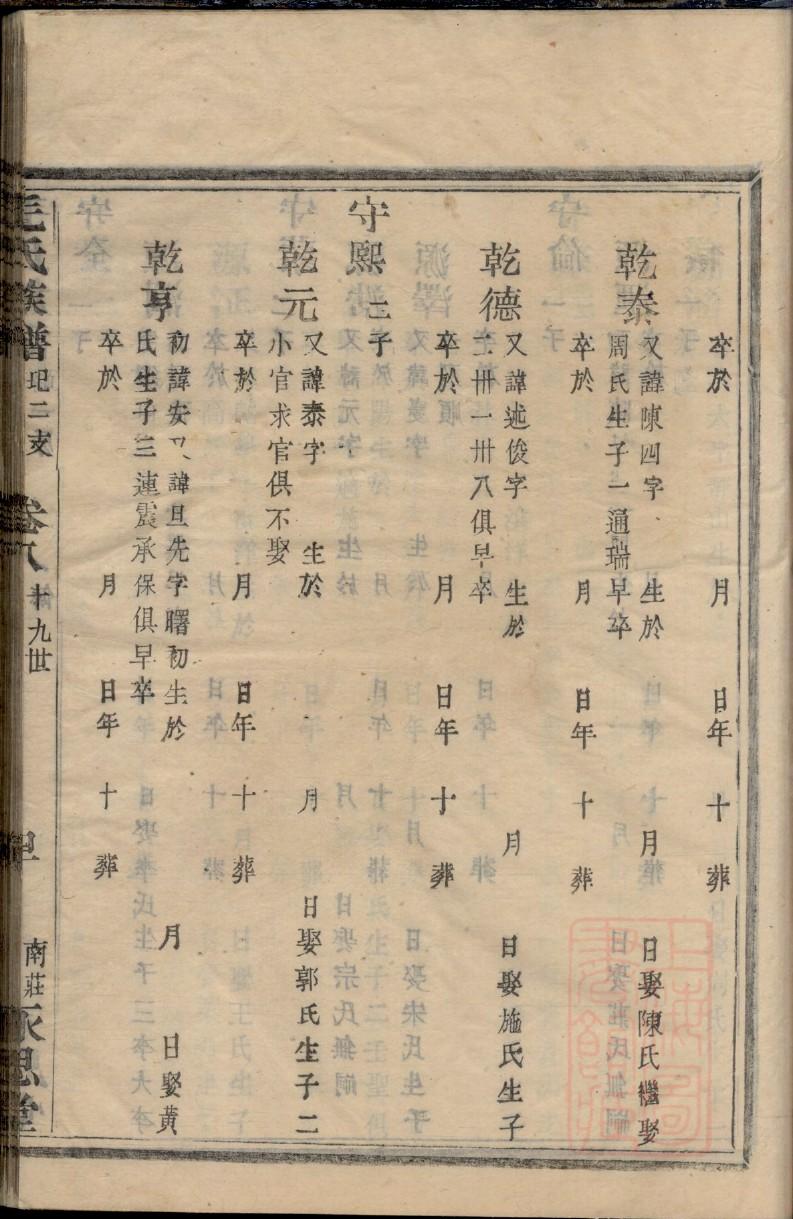 卒於 月 日年 十 葬
乾泰
又諱陳四字 生於 月 日娶陳氏繼娶
周氏生子一通瑞早卒
卒於 月 日年 十 葬
乾德
又諱述俊字 生於 月 日娶施氏生子
二卅一卅八俱早卒
卒於 月 日年 十 葬
守熙 子
乾元
又諱泰字 生於 月 日娶郭氏生子二
小官求官俱不娶
卒於 月 日年 十 葬
乾亨
初諱安又諱旦先字曙初生於 月 日娶黄
氏生子三連震承保俱早卒
卒於 月 日年 十 葬
毛氏族譜 圯二支 卷八 十九世 南莊永思堂